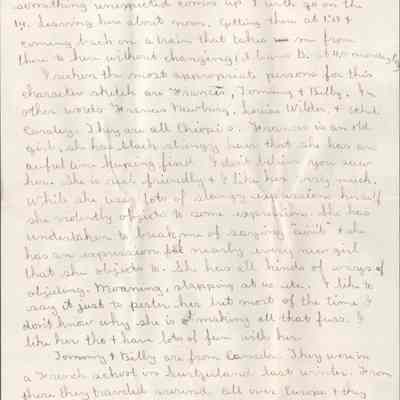 something unexpected comes up I will go on the
leaving here about noon. Getting there at 1:15 &
coming back on a train that takes me from
there to here without changing, it leaves B. at
I reckon the most appropriate persons for this
character sketch are Frances, Tommy & Billy. In
other words Frances Newburg, Louise Wilder, &
They are all Chiopi o. Frances is an old
girl, she has black stringy hair that she has an
awful time keeping fixed. I don't believe you saw
her. She is real friendly & I like her very much.
While she uses lots of slangy expressions herself
she violently objects to some expression. She has
undertaken to break me of saying "ain't" & she
has an expression for nearly every new girl
that she objects to. She has all kinds of ways of
objecting. Moaning, slapping at us etc. I like to
say it just to pester her but most of the time I
don't know why she is making all that fuss. I
like her tho & have lots of fun with her.
Tommy & Billy are from Canada. They were in
a French school in Switzerland last winter. From
there they traveled around all over Europe & they